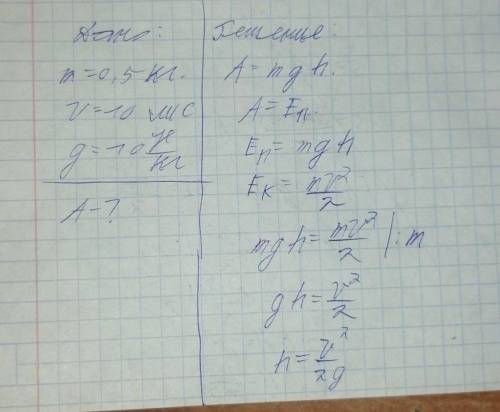 Дано:
m = 0,5 кг.
V = 10 м/с
g = 10 Н/кг
A - ?
Решение:
A = mgh.
A = Eп.
Eп = mgh
Eк = mv²/2
mgh = mv²/2 |: m
gh = v²/2
h = v²/2g